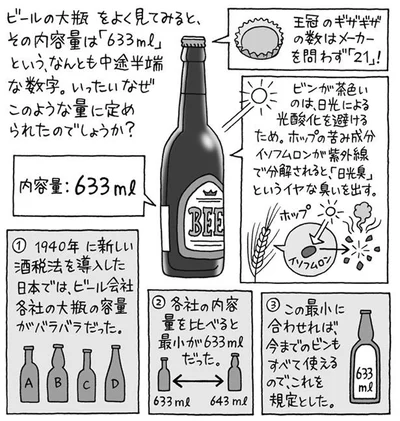 ビールの大瓶をよく見てみると、
その内容量は「633ml」
という、なんとも中途半端
な数字。いったいなぜ
このような量に定め
られたのでしょうか?
王冠のギザギザ
の数はメーカー
を問わず「21」!
ビンが茶色い
のは、日光による
光酸化を避ける
ため。ホップの苦み成分
イソフムロンが紫外線
で分解されると、「日光臭」
というイヤな臭いを出す。
ホップ
イソフムロン
内容量:633ml
BEE
① 1940年に新しい
酒税法を導入した
日本では、ビール会社
各社の大瓶の容量
がバラバラだった。
A B C D
② 各社の内容
量を比べると
最小が633ml
だった。
633ml 643ml
③ この最小に
合わせれば
今までのビンも
すべて使える
ので、これを
規定とした。
633
ml